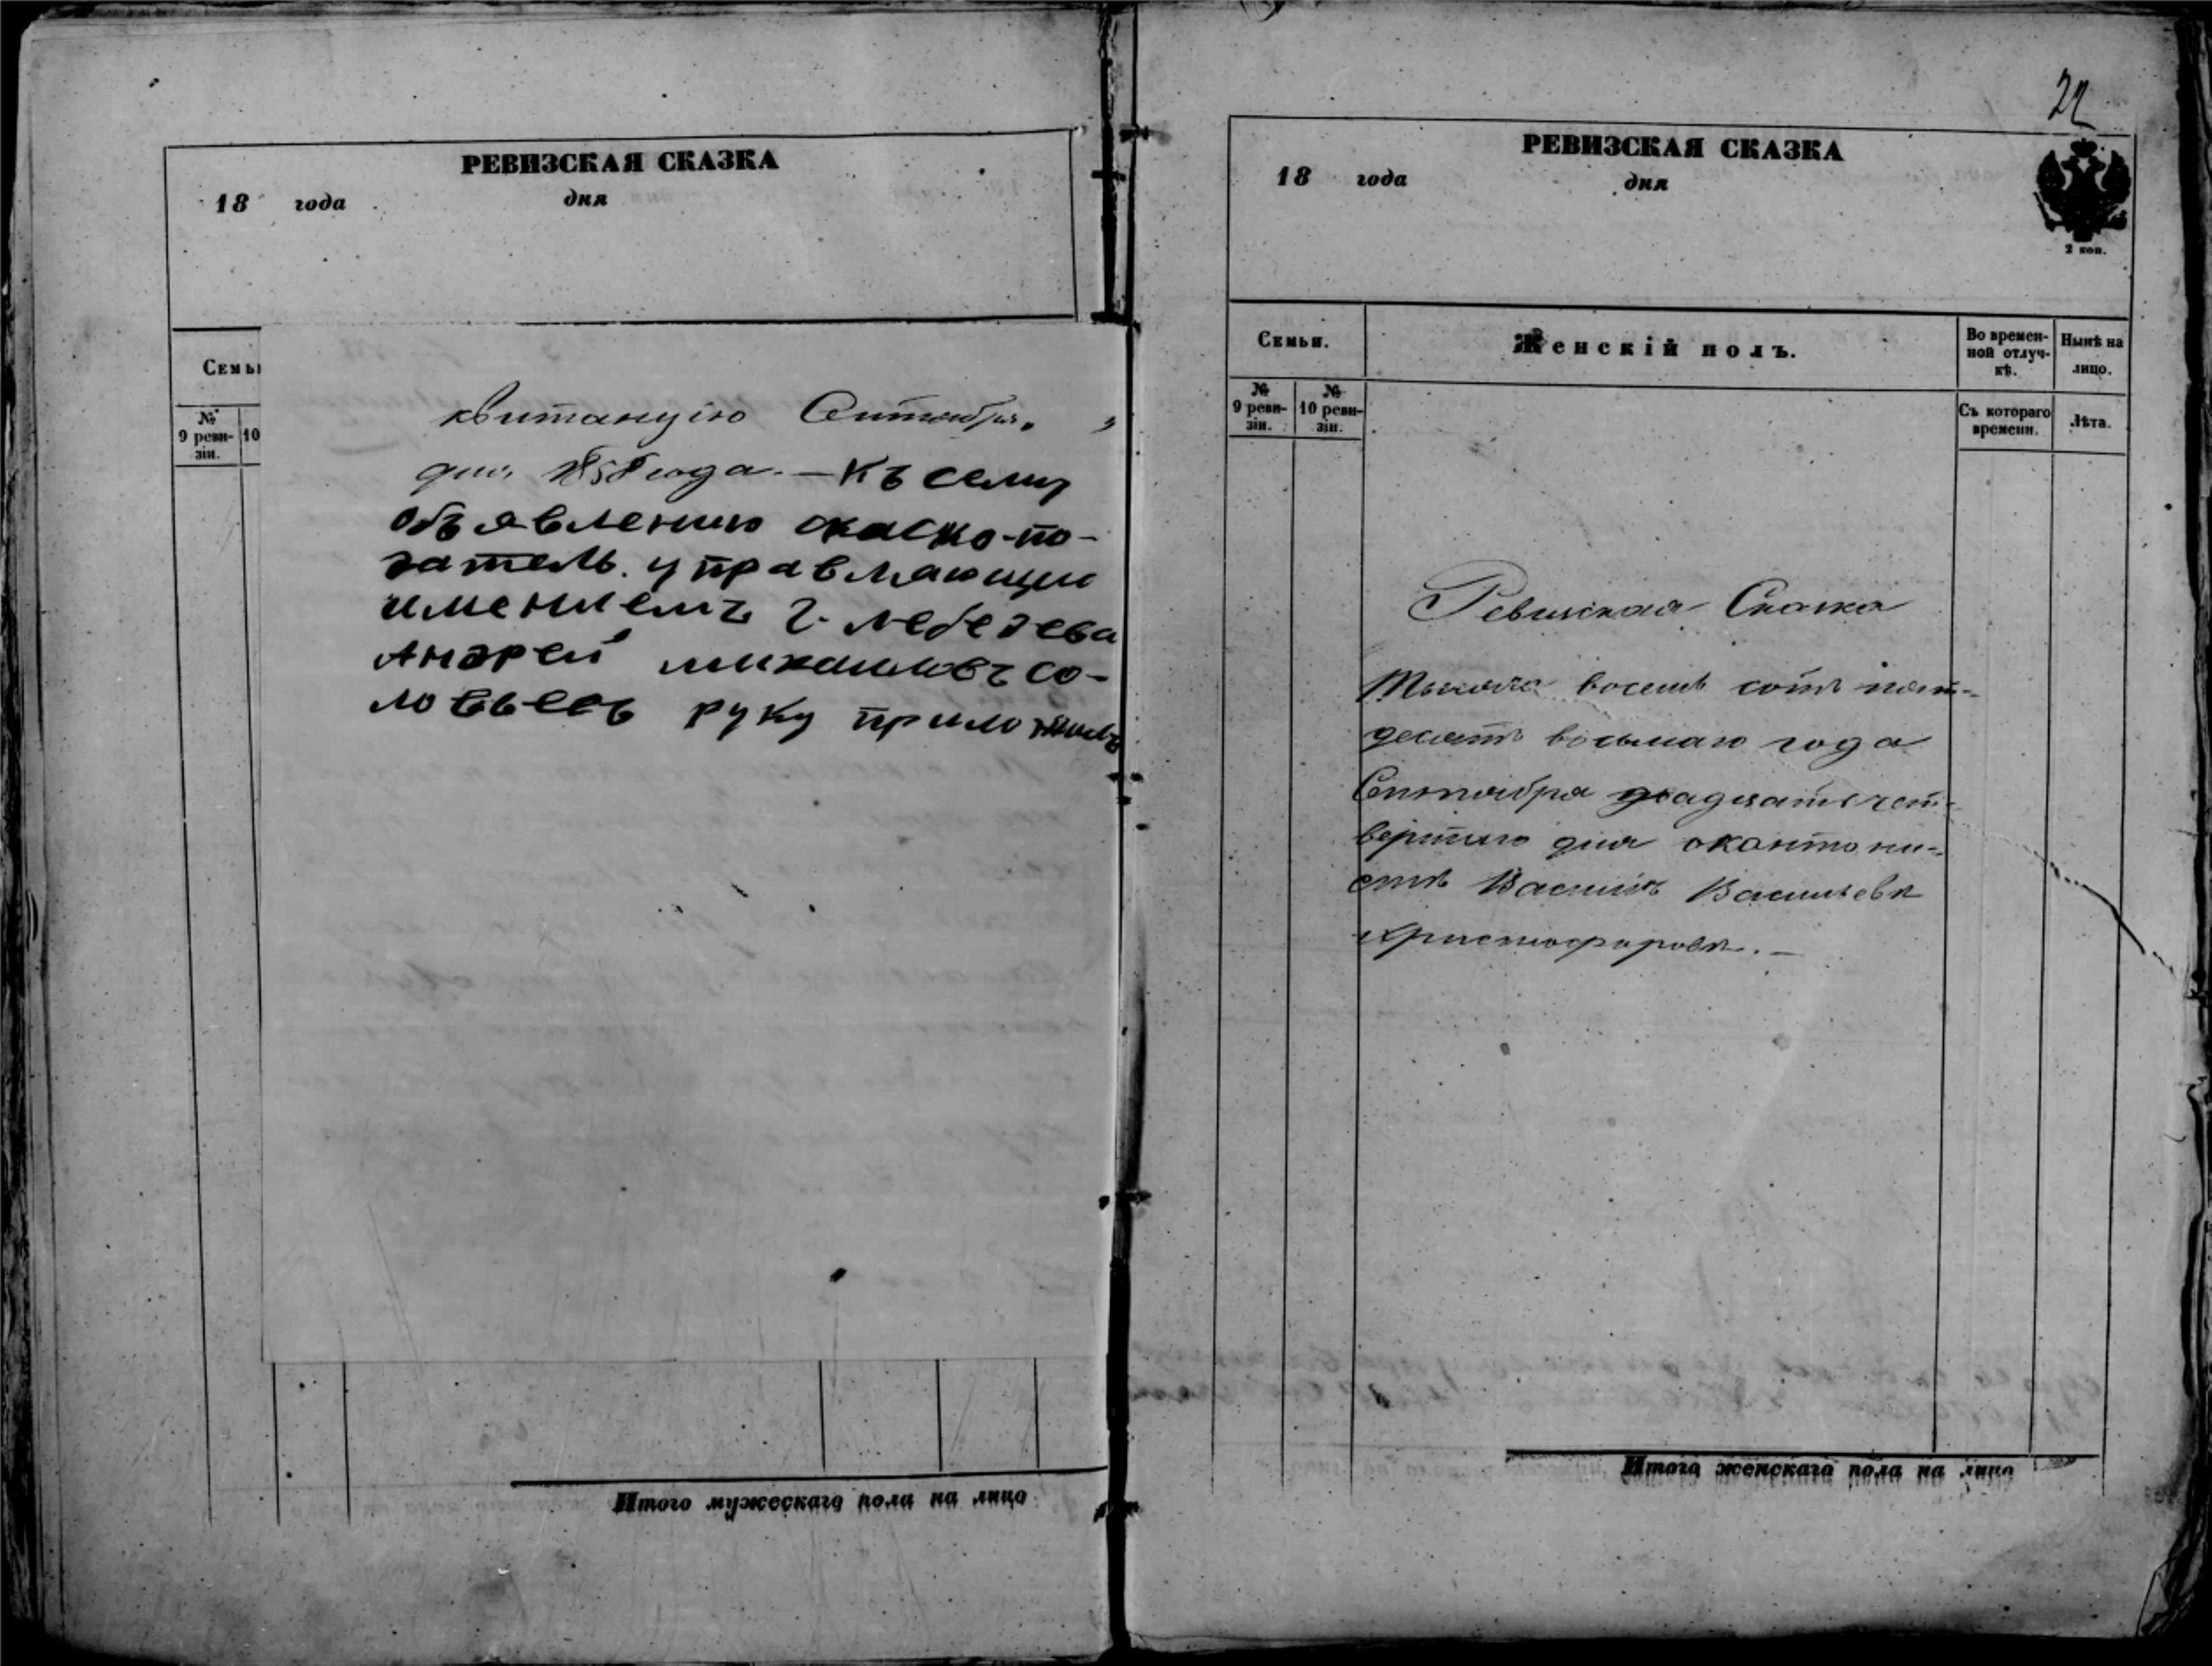 РЕВИЗСКАЯ СКАЗКА
18 года дня
Семьи
№
9 реви-
зіи.
10
квитанцію Сентября „ „
дня 1858 года. — Къ сему
объявлению скаско-по-
датель. управляющи
имениемъ г. лебедева
Андрей михаиловъ со-
ловьевъ руку приложилъ
Итого мужескаго пола на лицо
22
РЕВИЗСКАЯ СКАЗКА
18 года дня
2 коп.
Семьи.
Женскій полъ.
Во времен-
ной отлуч-
кѣ.
Нынѣ на
лицо.
№
9 реви-
зіи.
№
10 реви-
зіи.
Съ котораго
времени.
Лѣта.
Ревизская Сказка
Тысяча восемь сотъ пять-
десятъ восьмаго года
Сентября двадцать чет-
вертаго дня окантони-
стѣ Васильѣ Васильевѣ
Христофоровѣ. —
Итого женскаго пола на лицо